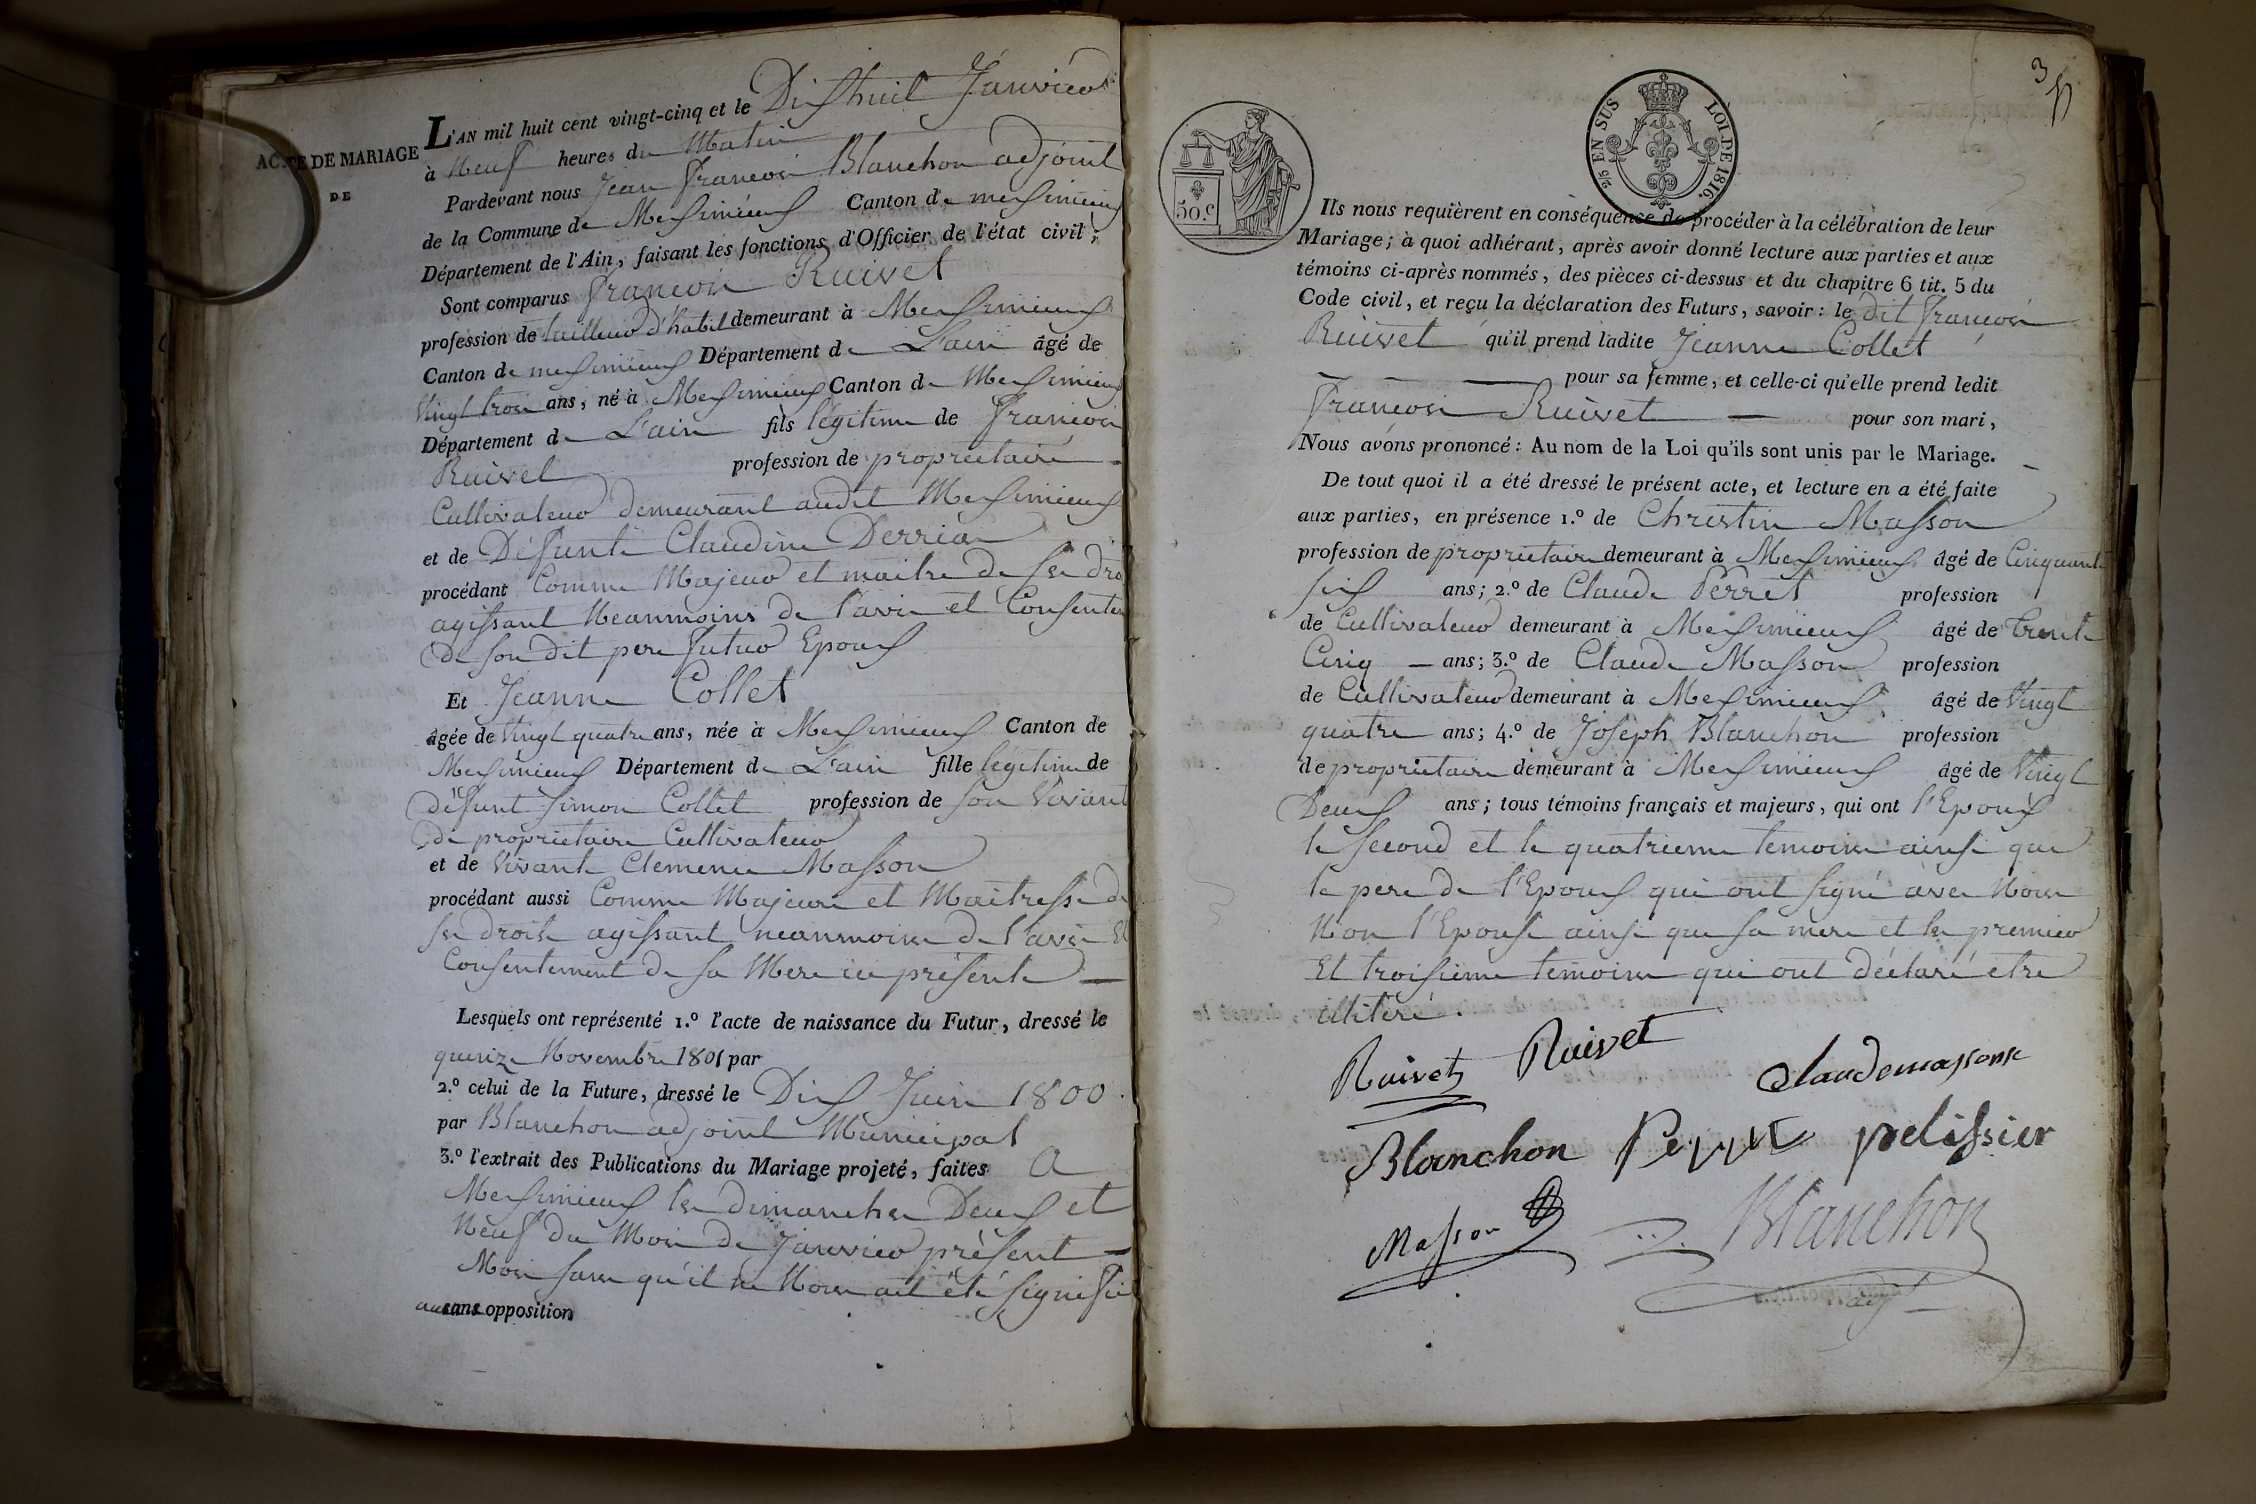 ACTE DE MARIAGE
DE
L'AN mil huit cent vingt-cinq et le Dixhuit Janvier
à Neuf heures du Matin
Pardevant nous Jean François Blanchon adjoint
de la Commune de Meximieux Canton de meximieux
Département de l'Ain, faisant les fonctions d'Officier de l'état civil;
Sont comparus François Ruivet
profession de tailleur d'habit demeurant à Meximieux
Canton de meximieux Département de L'ain âgé de
Vingt trois ans, né à Meximieux Canton de Meximieux
Département de L'ain fils légitime de François
Ruivet profession de propriétaire
Cultivateur demeurant audit Meximieux
et de Défunte Claudine Derrias
procédant Comme Majeur et maitre de ses droi
agissant Neanmoins de l'avis et Consentem
de son dit pere futur Epoux
Et Jeanne Collet
âgée de Vingt quatre ans, née à Meximieux Canton de
Meximieux Département de L'ain fille légitime de
défunt Simon Collet profession de son Vivant
de propriétaire Cultivateur
et de Vivante Clemence Masson
procédant aussi Comme Majeure et Maitresse de
ses droits agissant neanmoins de l'avis Et
Consentement de sa Mere ici présente
Lesquels ont représenté 1.º l'acte de naissance du Futur, dressé le
quinze Novembre 1801 par
2.º celui de la Future, dressé le Dix Juin 1800.
par Blanchon adjoint Municipal
3.º l'extrait des Publications du Mariage projeté, faites A
Meximieux les dimanches Deux et
Neuf du Mois de Janvier présent
Mois sans qu'il ne Nous ait été signifié
aucune opposition
3
50.c
2/5 EN SUS
LOI DE 1816.
Ils nous requièrent en conséquence de procéder à la célébration de leur
Mariage; à quoi adhérant, après avoir donné lecture aux parties et aux
témoins ci-après nommés, des pièces ci-dessus et du chapitre 6 tit. 5 du
Code civil, et reçu la déclaration des Futurs, savoir: le dit François
Ruivet qu'il prend ladite Jeanne Collet
pour sa femme, et celle-ci qu'elle prend ledit
François Ruivet pour son mari,
Nous avons prononcé: Au nom de la Loi qu'ils sont unis par le Mariage.
De tout quoi il a été dressé le présent acte, et lecture en a été faite
aux parties, en présence 1.º de Christin Masson
profession de propriétaire demeurant à Meximieux âgé de Cinquante
six ans; 2.º de Claude Perret profession
de Cultivateur demeurant à Meximieux âgé de Trente
Cinq ans; 3.º de Claude Masson profession
de Cultivateur demeurant à Meximieux âgé de Vingt
quatre ans; 4.º de Joseph Blanchon profession
de propriétaire demeurant à Meximieux âgé de Vingt
Deux ans; tous témoins français et majeurs, qui ont l'Epoux
le second et le quatrieme temoins ainsi que
le pere de l'Epoux qui ont signé avec Nous
Non l'Epouse ainsi que sa mere et les premier
Et troisieme temoins qui ont déclaré etre
illiteré.
Ruivet Ruivet
claudemassons
Blanchon Perret pelissier
Masson Blanchon
adjt